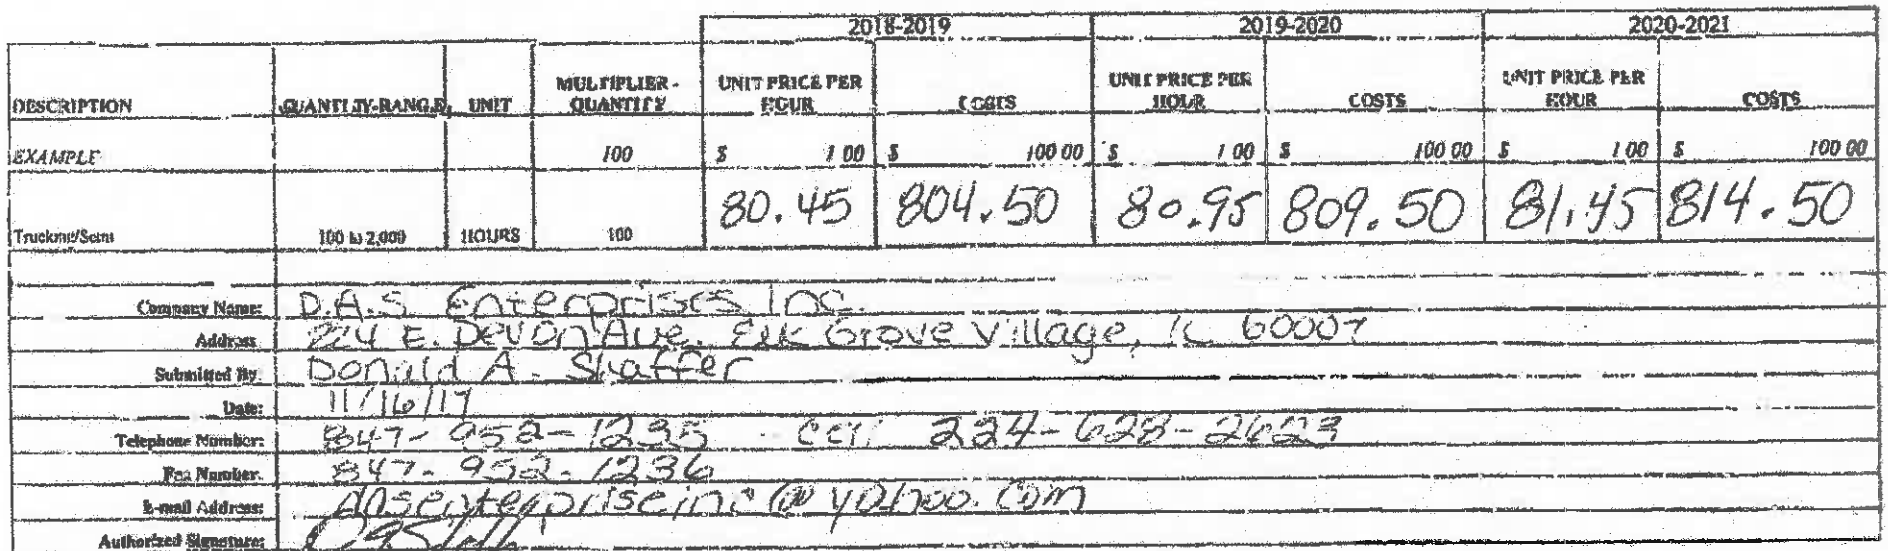 2018-2019 2019-2020 2020-2021
DESCRIPTION QUANTITY-RANGE UNIT MULTIPLIER - QUANTITY UNIT PRICE PER HOUR COSTS UNIT PRICE PER HOUR COSTS UNIT PRICE PER HOUR COSTS
EXAMPLE 100 $ 1 00 $ 100 00 $ 1 00 $ 100 00 $ 1 00 $ 100 00
Trucking/Semi 100 to 2,000 HOURS 100 80.45 804.50 80.95 809.50 81.45 814.50
Company Name: D.A.S. Enterprises Inc.
Address E. Devon Ave. Elk Grove Village, IL 60007
Submitted By: Donald A. Shaffer
Date: 11/16/17
Telephone Number: 847-952-1235 - cell 224-628-2623
Fax Number. 847-952-1236
E-mail Address: dasenterpriseinc@yahoo.com
Authorized Signature: